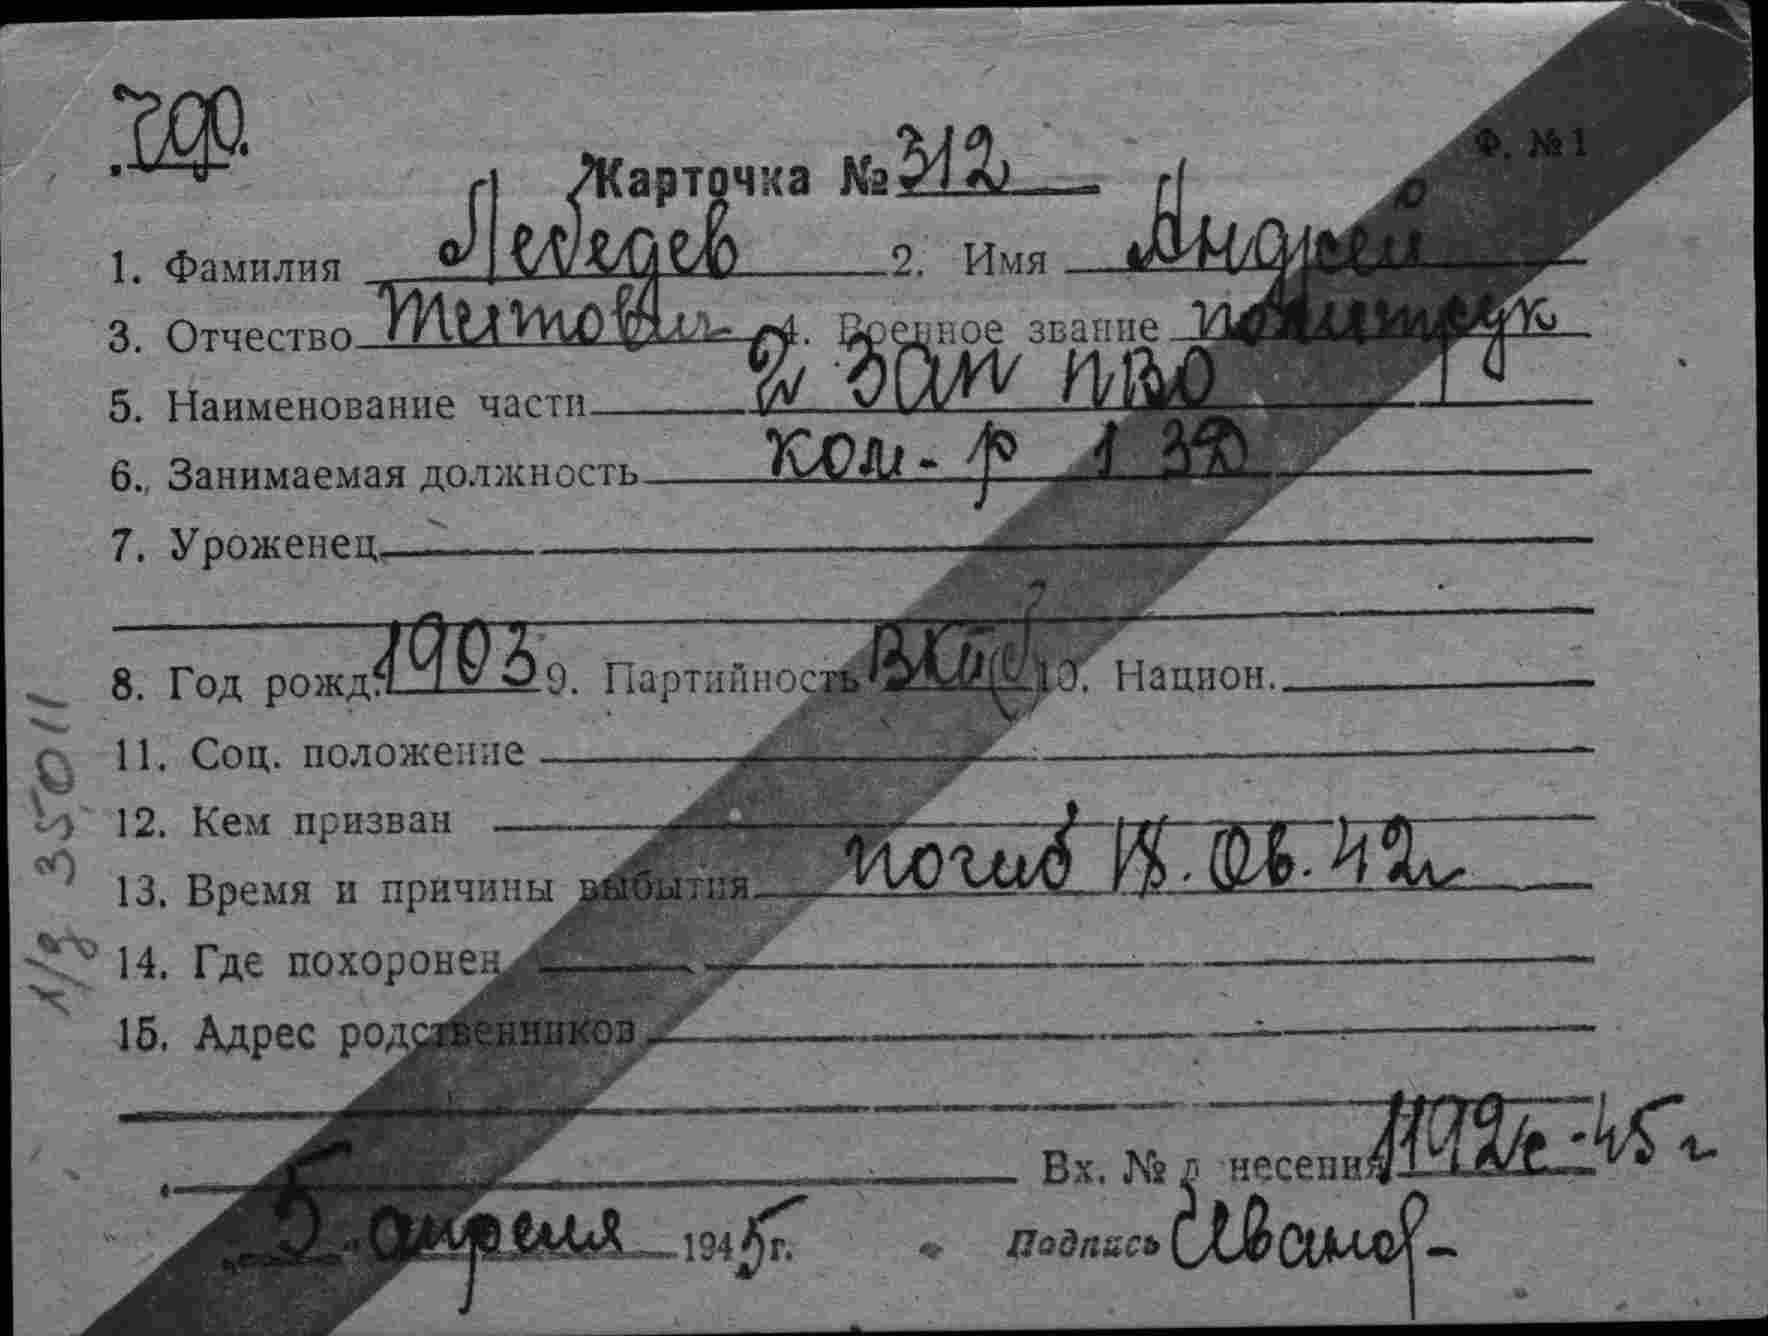 Ф. №1
Карточка № 312
1. Фамилия Лебедев 2. Имя Андрей
3. Отчество Титович 4. Военное звание политрук
5. Наименование части зап ПВО
6. Занимаемая должность ком-р 1
7. Уроженец
8. Год рожд. 1903 9. Партийность ВКП(б) 10. Национ.
11. Соц. положение
12. Кем призван
13. Время и причины выбытия погиб 42г
14. Где похоронен
15. Адрес родственников
Вх. № д несения 1192с-45г
"5" апреля 1945г. Подпись Иванов
35011